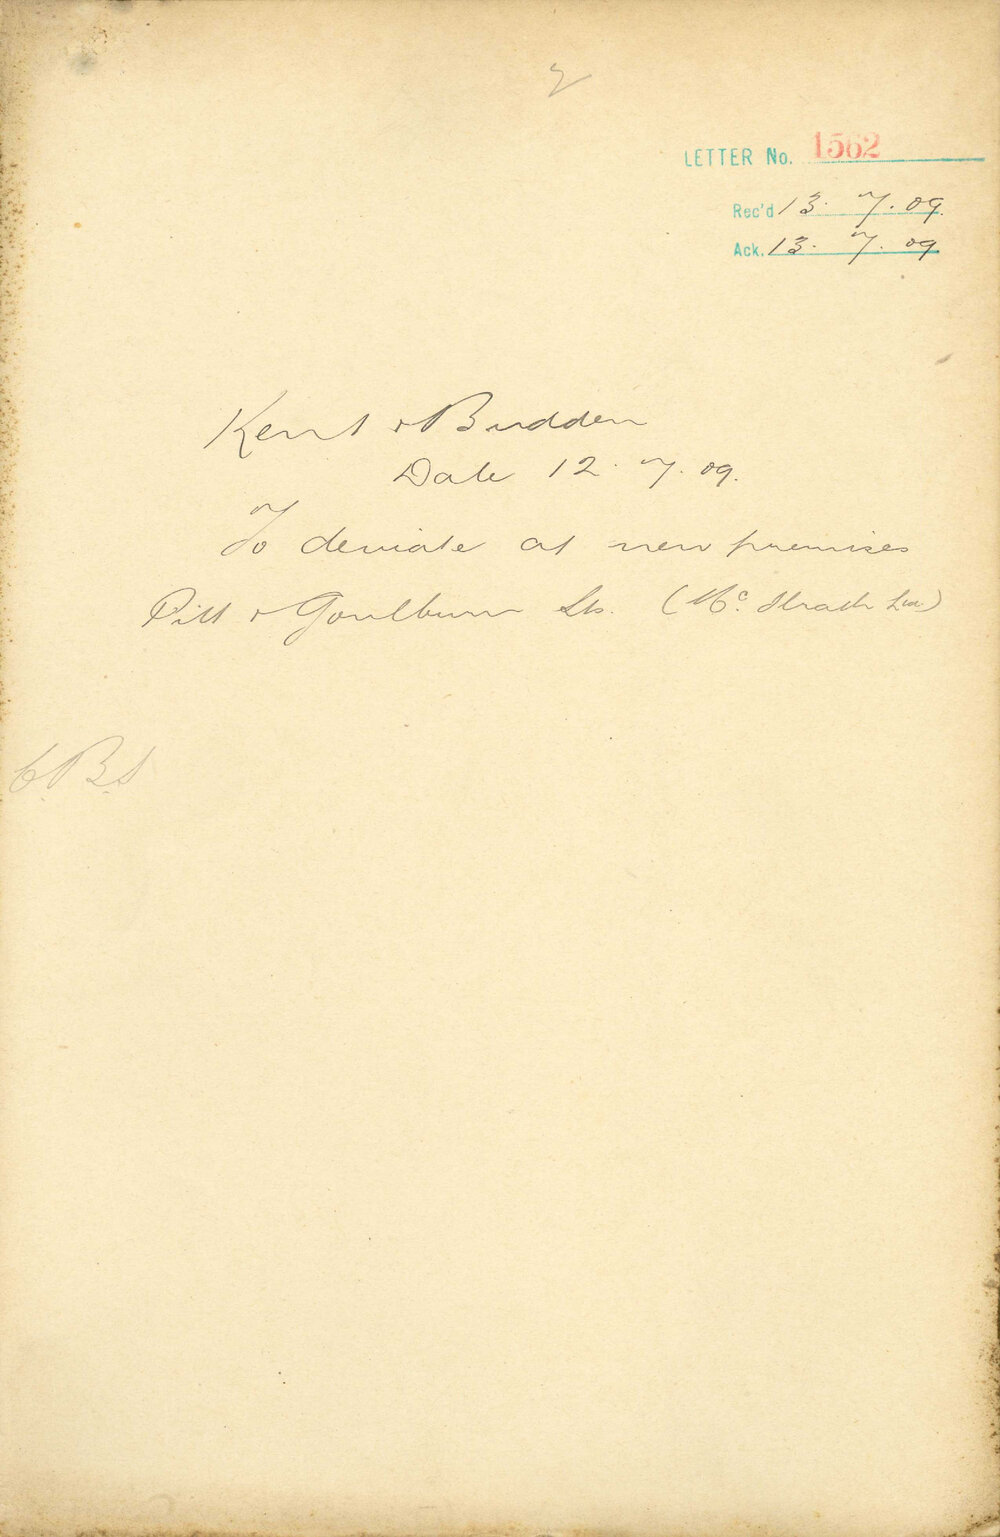 2
LETTER No. 1562
Rec'd 13. 7. 09.
Ack. 13. 7. 09
Kent & Budden
Date 12. 7. 09.
To deviate at new premises
Pitt & Goulburn Sts. (Mc. Ilrath Ltd)
C.B.S